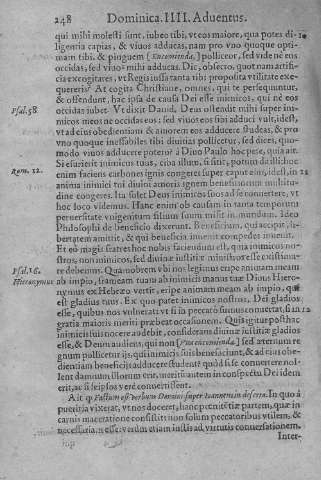 248 Dominica. IIII. Aduentus.
qui mihi molesti sunt, iubeo tibi, vt eos maiore, qua potes di-
ligentia capias, & viuos adducas, nam pro vno quoque opti-
mam tibi, & pinguem [Encomienda,] polliceor, sed vide ne eos
occidas, sed viuos mihi adducas. Dic, obsecro, quot nam artifi-
cia excogitares, vt Regis iussa tanta tibi proposita vtilitate exe-
quereris? At cogita Christiane, omnes, qui te persequuntur,
& offendunt, hac ipsa de causa Dei esse inimicos, qui né eos
Psal. 58. occidas iubet. Vt dixit Dauid. Deus ostendit mihi super ini-
micos meos ne occidas eos: sed viuos eos sini adduci vult, idest,
vt ad eius obedientiam & amorem eos adducere studeas, & pro
vno quoque ineffabiles tibi diuinas pollicetur, sed dices, quo-
modo viuos adducere potero? à Diuo Paulo hoc pete, quia ait.
Rom. 12. Si esurierit inimicus tuus, ciba illum, si sitit, potum da illi: hoc
enim faciens carbones ignis congeres super caput eius, idest, in
anima inimici tui diuini amoris ignem beneficiorum multitu-
dine congeres. Ita solet Deus inimicos suos ad se conuertere, vt
hoc loco videmus. Hanc enim ob causam in tanta temporum
peruersitate vnigenitum filium suum misit in mundum. Ideo
Philosophi de beneficio dixerunt. Beneficium, qui accipit, li-
bertatem amittit, & qui beneficia inuenit compedes inuenit.
Et eò magis statret hoc nobis faciendum est, quia inimicos no-
stros, non inimicos, sed diuinæ iustitiæ ministros esse existima-
Psal. 16. re debemus. Quamobrem vbi nos legimus eripe animam meam
Hieronymus ab impio, frameam tuam ab inimicis manus tuæ Diuus Hiero-
nymus ex Hebræo vertit, eripe animam meam ab impio, qui
est gladius tuus. Ex quo patet inimicos nostros, Dei gladios
esse, quibus nos vulnerat vt si in peccato sumus conuertat, si in
gratia maioris meriti præbeat occasionem. Quis igitur posthac
inimicis suis nocere audebit, considerans diuinæ iustitiæ gladios
esse, & Deum audiens, qui non [vna encomienda] sed æternum re-
gnum pollicetur ijs, qui inimicis suis benefaciunt, & ad eius obe-
dientiam beneficijs adducere student? quòd si se conuertere nol-
lent damnum illorum erit, meritum autem in conspectu Dei idem
erit, ac si se ipsos verè conuertissent.
Ait ꝙ Factum est verbum Domini super Ioannem in deserto. In quo à
pueritia vixerat, vt nos doceret, hanc pœnitentiæ partem, quæ in
carnis maceratione consistit non solum peccatoribus vtilem, &
necessariam esse: verùm etiam iustis ad virtutis conuersationem.
Inter-